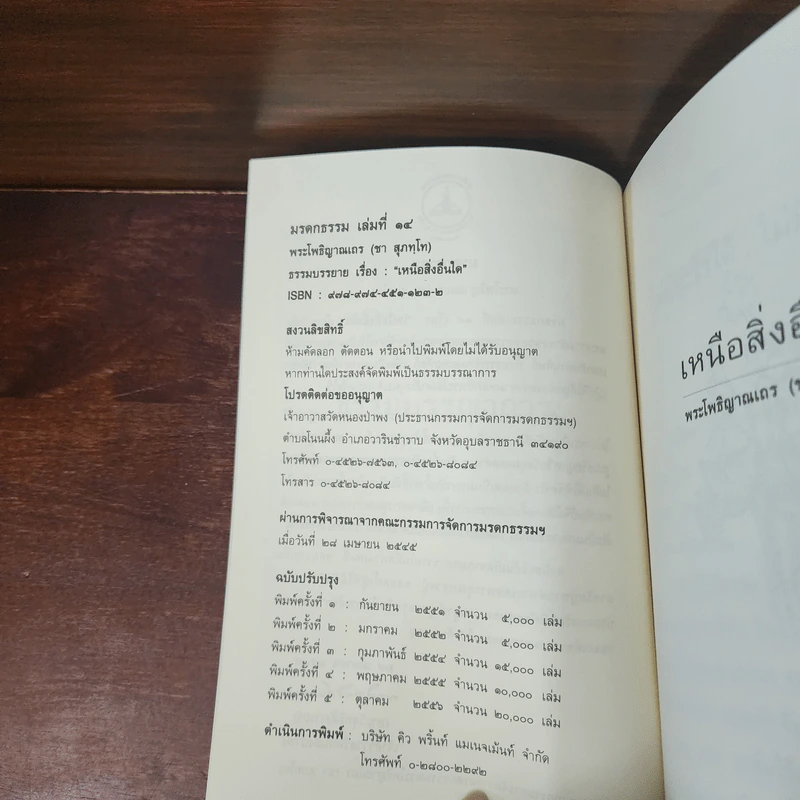 มรดกธรรม เล่มที่ ๑๔
พระโพธิญาณเถร (ชา สุภทฺโท)
ธรรมบรรยาย เรื่อง : "เหนือสิ่งอื่นใด"
ISBN : ๙๗๘-๙๗๔-๔๕๑-๑๒๓-๒
สงวนลิขสิทธิ์
ห้ามคัดลอก ตัดตอน หรือนำไปพิมพ์โดยไม่ได้รับอนุญาต
หากท่านใดประสงค์จัดพิมพ์เป็นธรรมบรรณาการ
โปรดติดต่อขออนุญาต
เจ้าอาวาสวัดหนองป่าพง (ประธานกรรมการจัดการมรดกธรรมฯ)
ตำบลโนนผึ้ง อำเภอวารินชำราบ จังหวัดอุบลราชธานี ๓๔๑๙๐
โทรศัพท์ ๐-๔๕๒๖-๗๕๖๓, ๐-๔๕๒๖-๘๐๘๔
โทรสาร ๐-๔๕๒๖-๘๐๘๔
ผ่านการพิจารณาจากคณะกรรมการจัดการมรดกธรรมฯ
เมื่อวันที่ ๒๘ เมษายน ๒๕๔๕
ฉบับปรับปรุง
พิมพ์ครั้งที่ ๑ : กันยายน ๒๕๕๑ จำนวน ๕,๐๐๐ เล่ม
พิมพ์ครั้งที่ ๒ : มกราคม ๒๕๕๒ จำนวน ๕,๐๐๐ เล่ม
พิมพ์ครั้งที่ ๓ : กุมภาพันธ์ ๒๕๕๔ จำนวน ๑๕,๐๐๐ เล่ม
พิมพ์ครั้งที่ ๔ : พฤษภาคม ๒๕๕๕ จำนวน ๑๐,๐๐๐ เล่ม
พิมพ์ครั้งที่ ๕ : ตุลาคม ๒๕๕๖ จำนวน ๒๐,๐๐๐ เล่ม
ดำเนินการพิมพ์ : บริษัท คิว พริ้นท์ แมเนจเม้นท์ จำกัด
โทรศัพท์ ๐-๒๘๐๐-๒๒๙๒
เหนือสิ่งอื
พระโพธิญาณเถร (ช